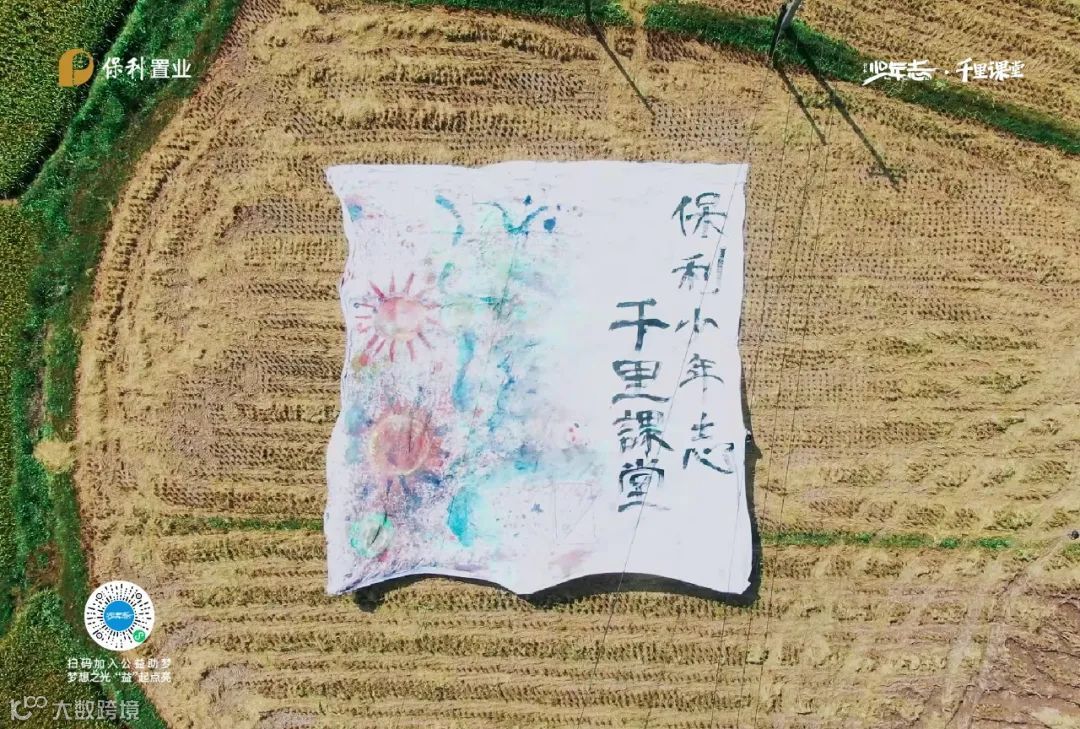 保利置业
少年志·千里课堂
保利小年志
千里課堂
少年志
扫码加入公益助梦
梦想之光 “益”起点亮
大数跨境